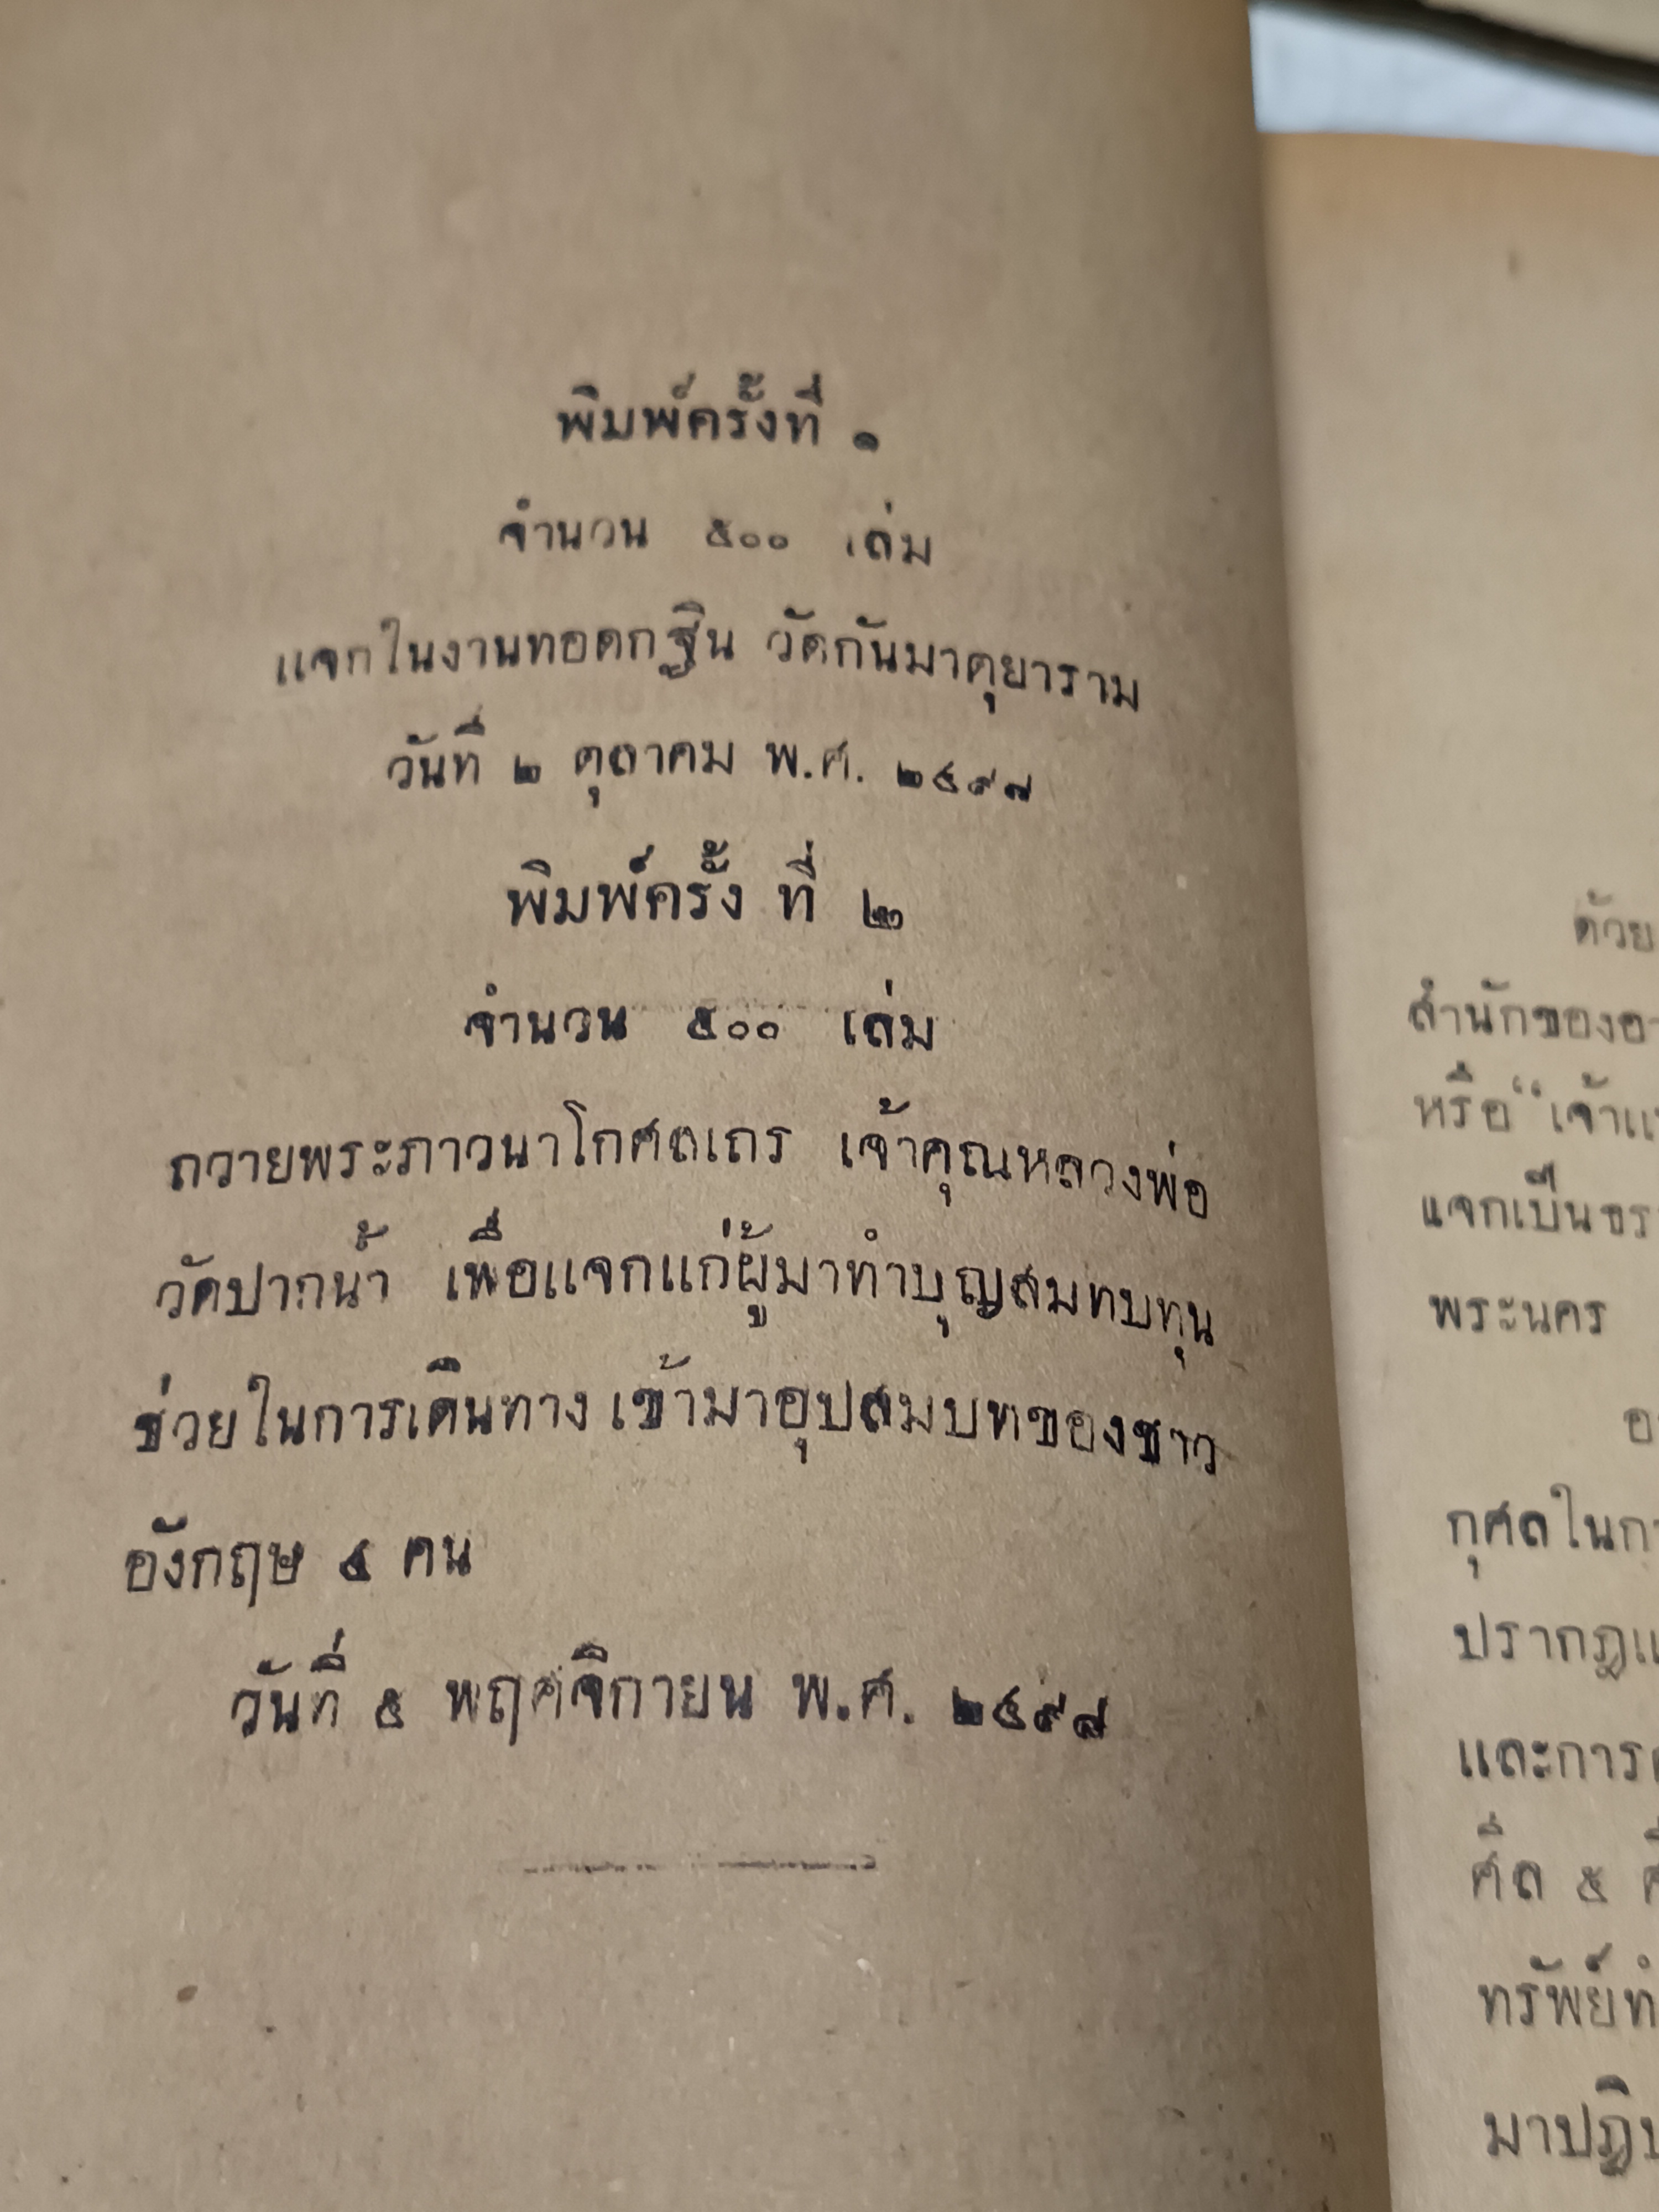 พิมพ์ครั้งที่ ๑
จำนวน ๕๐๐ เล่ม
แจกในงานทอดกฐิน วัดกันมาตุยาราม
วันที่ ๒ ตุลาคม พ.ศ. ๒๔๙๗
พิมพ์ครั้ง ที่ ๒
จำนวน ๕๐๐ เล่ม
ถวายพระภาวนาโกศลเถร เจ้าคุณหลวงพ่อ
วัดปากน้ำ เพื่อแจกแก่ผู้มาทำบุญสมทบทุน
ช่วยในการเดินทาง เข้ามาอุปสมบทของชาว
อังกฤษ ๔ คน
วันที่ ๕ พฤศจิกายน พ.ศ. ๒๔๙๘
ด้วย
สำนักของ
หรือ“เจ้าแ
แจกเป็นธร
พระนคร
กุศลในก
ปรากฏแ
และการ
ศีล ๕
ทรัพย์ท
มาปฏิบ